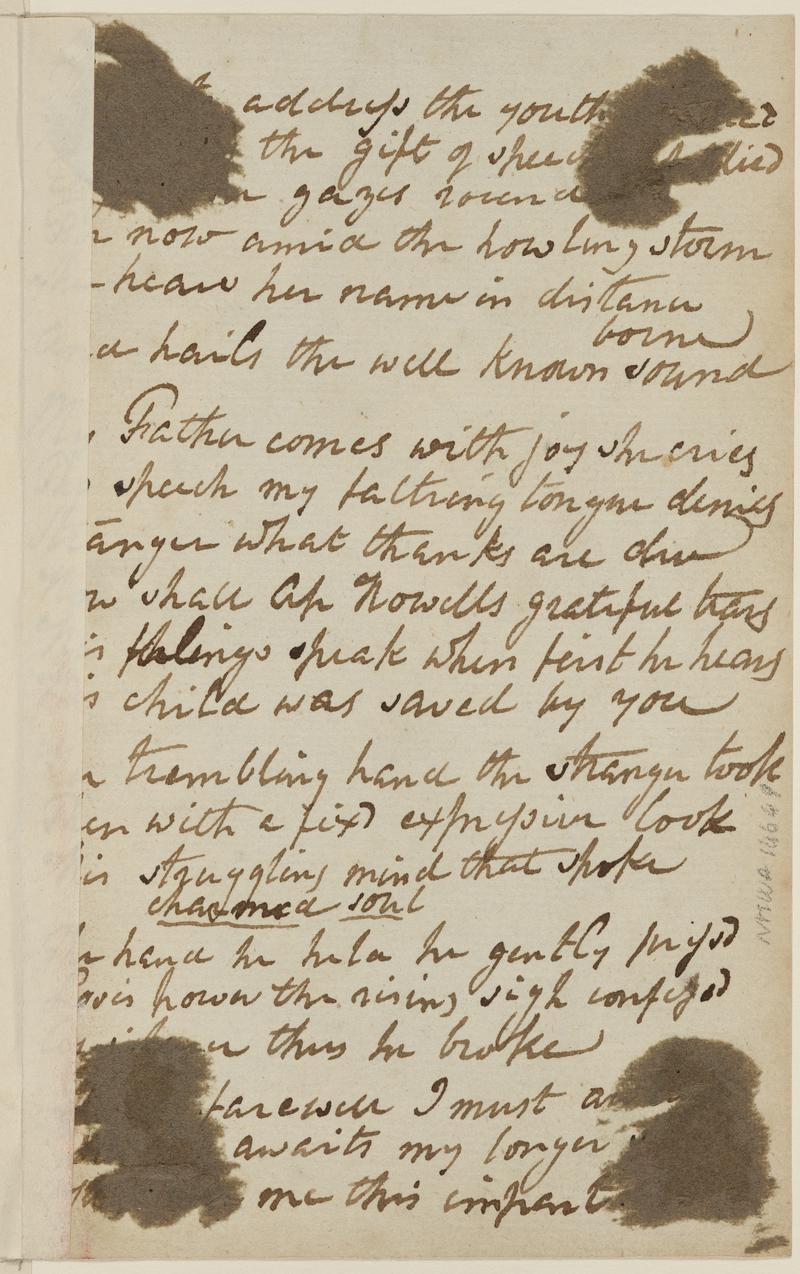 address the youth
the gift of speech
gazes round
now amid the howling storm
hears her name in distance
borne
hails the well known sound
Father comes with joy she cries
speech my faltring tongue denies
anger what thanks are due
shall Ap Howells grateful tears
feelings speak when first he hears
child was saved by you
trembling hand the stranger took
with a fix'd expressive look
struggling mind that spoke
charmed soul
hand he held he gently press'd
power the rising sigh confess'd
thus he broke
farewell I must
awaits my longer
me this impart